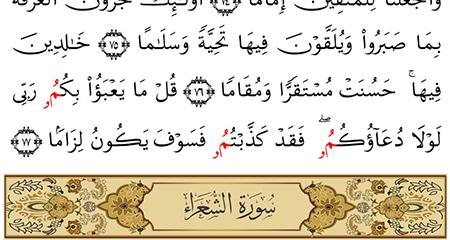 وَٱجْعَلْنَا لِلْمُتَّقِينَ إِمَامًا ٧٤ أُوْلَٰٓئِكَ يُجْزَوْنَ ٱلْغُرْفَةَ
بِمَا صَبَرُواْ وَيُلَقَّوْنَ فِيهَا تَحِيَّةً وَسَلَٰمًا ٧٥ خَٰلِدِينَ
فِيهَا ۚ حَسُنَتْ مُسْتَقَرًّا وَمُقَامًا ٧٦ قُلْ مَا يَعْبَؤُاْ بِكُمُۥ رَبِّى
لَوْلَا دُعَآؤُكُمُۥ ۖ فَقَدْ كَذَّبْتُمُۥ فَسَوْفَ يَكُونُ لِزَامًۢا ٧٧
سُورَةُ الشُّعَرَاءِ